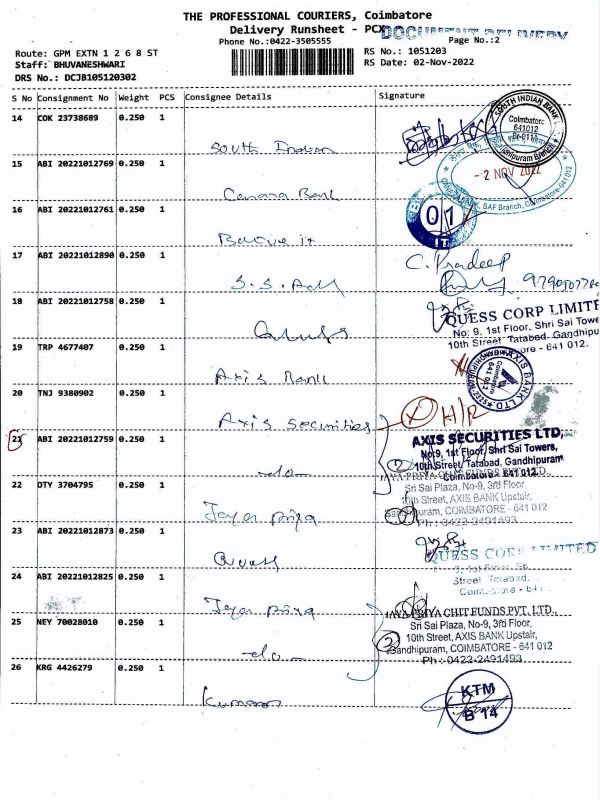 THE PROFESSIONAL COURIERS, Coimbatore
Delivery Runsheet - PCX
DOCUMENT DELIVERY
Phone No.:0422-3505555
Page No.:2
Route: GPM EXTN 1 2 6 8 ST
RS No.: 1051203
Staff: BHUVANESHWARI
RS Date: 02-Nov-2022
DRS No.: DCJB105120302
S No Consignment No Weight PCS Consignee Details Signature
14 COK 23738689 0.250 1
South Indian
SOUTH INDIAN BANK
Coimbatore
641012
15 ABI 20221012769 0.250 1
Canara Bank
- 2 NOV 2022
SAF Branch, Coimbatore-641 012
16 ABI 20221012761 0.250 1
01
IT
17 ABI 20221012890 0.250 1
C. Pradeep
18 ABI 20221012758 0.250 1
QUESS CORP LIMITE
No: 9, 1st Floor, Shri Sai Towe
10th Street, Tatabad, Gandhipu
ore - 641 012.
19 TRP 4677407 0.250 1
Axis Bank
AXIS BANK LTD
Coimbatore
641 012
20 TNJ 9380902 0.250 1
Axis Securities
H/R
21 ABI 20221012759 0.250 1
-do-
AXIS SECURITIES LTD,
No:9, 1st Floor, Shri Sai Towers,
10th Street, Tatabad, Gandhipuram
Coimbatore - 641 012.
22 DTY 3704795 0.250 1
Jaya priya
JAYA PRIYA CHIT FUNDS PVT. LTD.
Sri Sai Plaza, No-9, 3rd Floor,
10th Street, AXIS BANK Upstair,
Gandhipuram, COIMBATORE - 641 012
Ph: 0422-2491493
23 ABI 20221012873 0.250 1
Quess
QUESS CORP LIMITED
24 ABI 20221012825 0.250 1
Jaya priya
JAYA PRIYA CHIT FUNDS PVT. LTD.,
Sri Sai Plaza, No-9, 3rd Floor,
25 NEY 70028010 0.250 1
-do-
10th Street, AXIS BANK Upstair,
Gandhipuram, COIMBATORE - 641 012
Ph: 0422-2491493
26 KRG 4426279 0.250 1
Kumaran
KTM
B 14